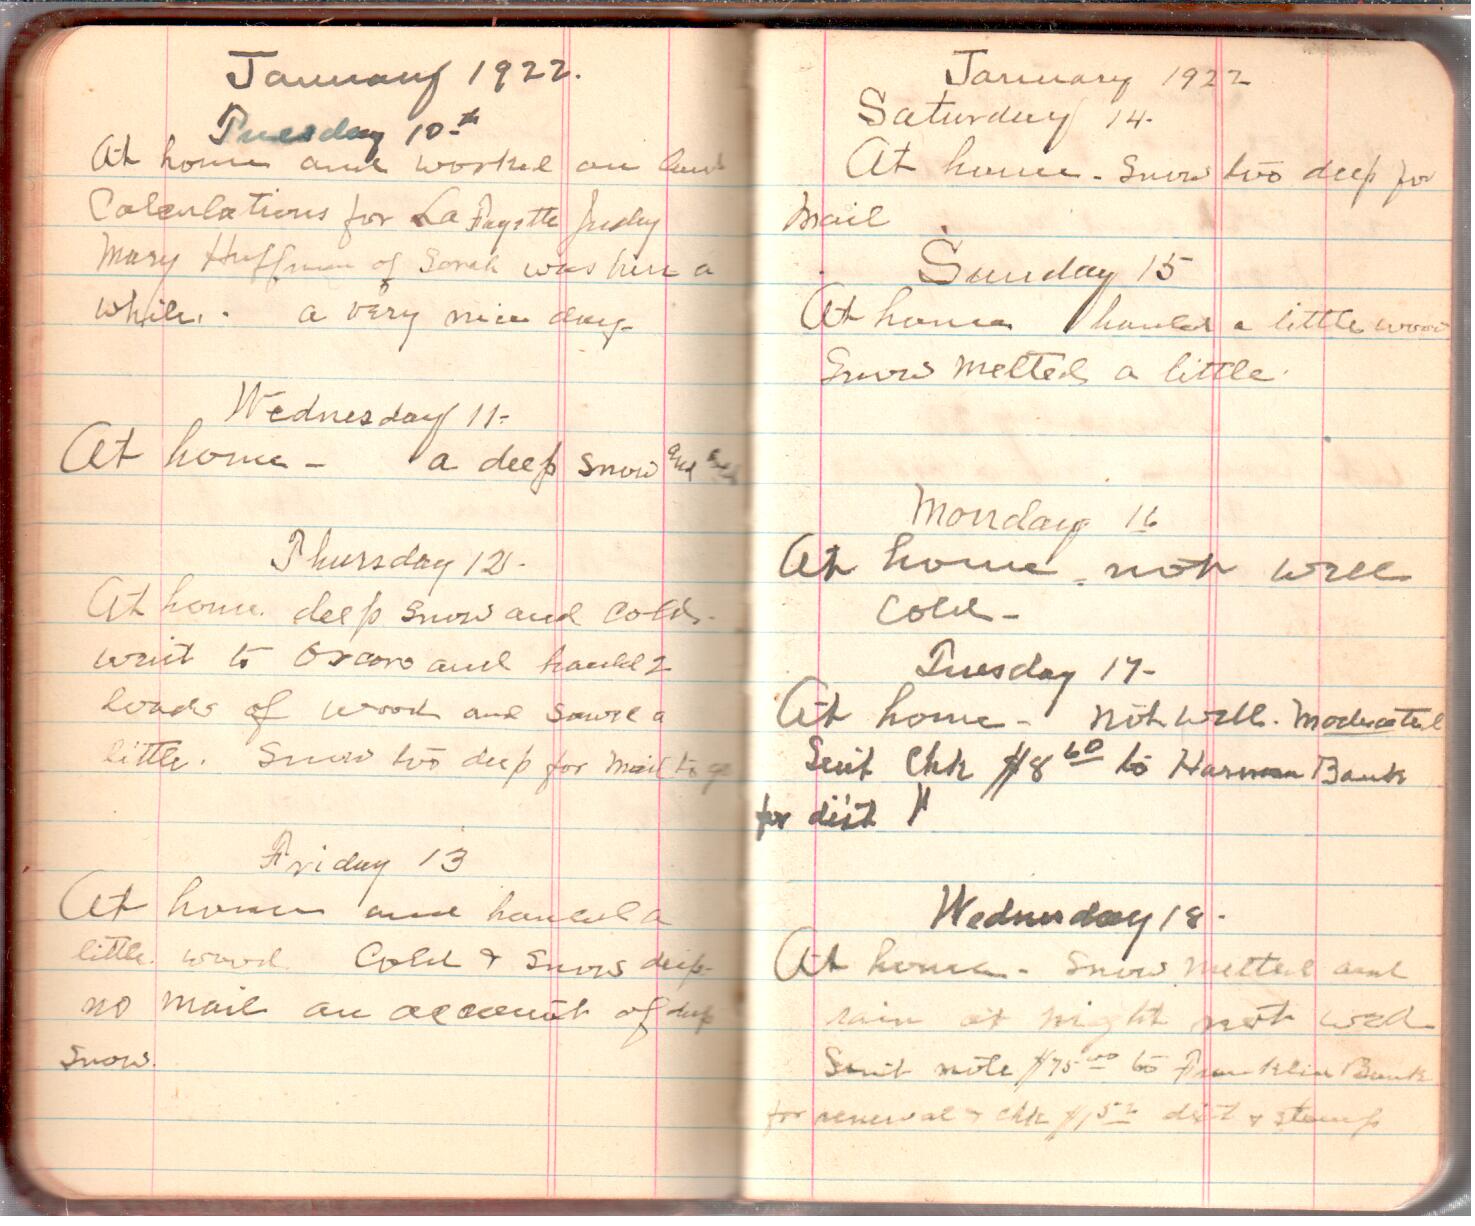 January 1922.
Tuesday 10th
At home and worked on land
Calculations for LaFayette Judy
Mary Huffman of Sarah was here a
while. a very nice day-
Wednesday 11-
At home - a deep snow and
Thursday 12-
At home. deep snow and cold-
went to and hauld 2
loads of wood and sawed a
little. Snow too deep for mail to go
Friday 13
At home and hauled a
little wood Cold & Snow deep-
no mail on account of deep
snow.
January 1922
Saturday 14-
At home - snow too deep for
mail
Sunday 15
At home hauled a little wood
Snow melted a little.
Monday 16
At home - not well
cold-
Tuesday 17-
At home - not well. moderated
Sent Chk $8 60 to Harman Bank
for dist
Wednesday 18-
At home - Snow melted and
rain at night not well
Sent note $75 00 to Franklin Bank
for renewal & chk dist & stamp